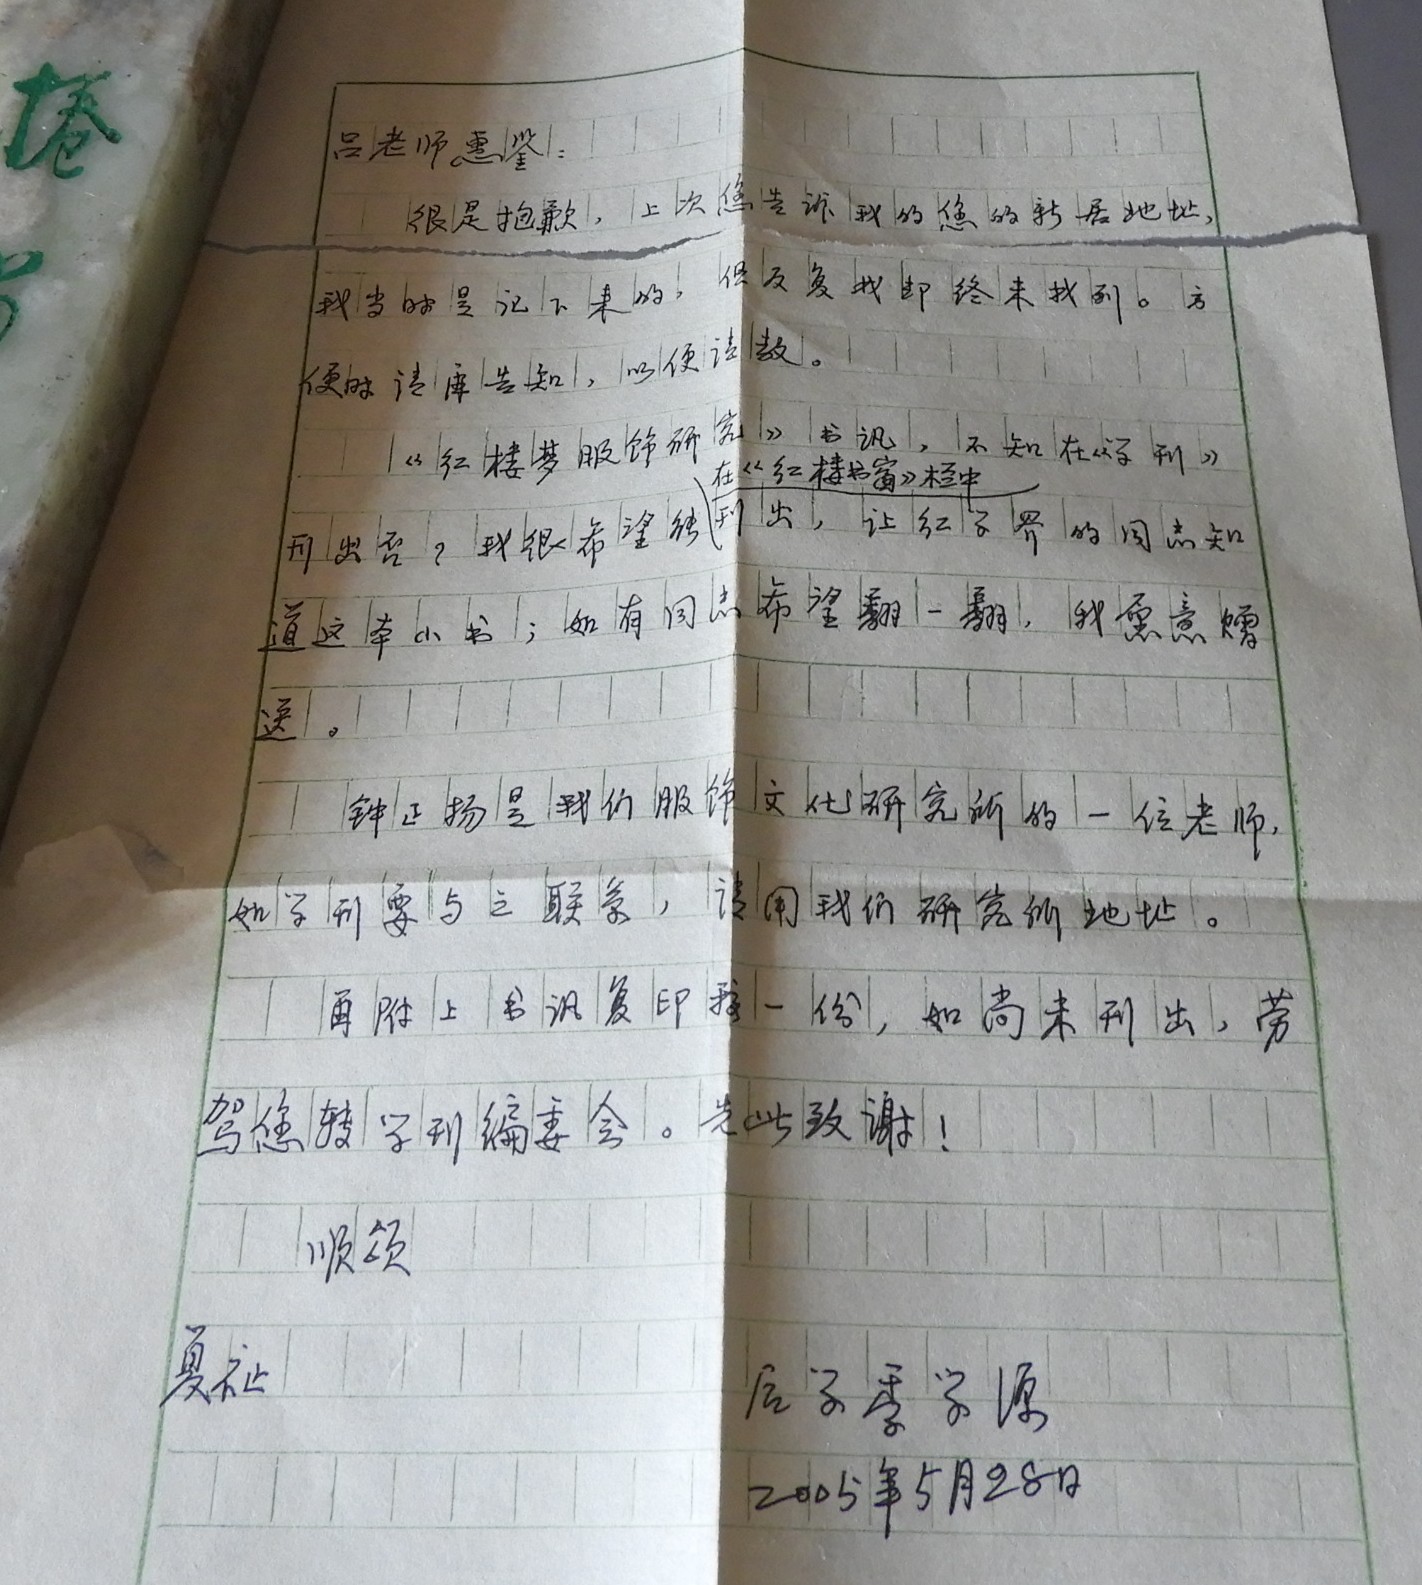 吕老师惠鉴：
很是抱歉，上次您告诉我的您的新居地址，
我当时是记下来的，但反复找却终未找到。方
便时请再告知，以便请教。
《红楼梦服饰研究》书讯，不知在《学刊》
在《红楼书窗》栏中
刊出否？我很希望能刊出，让红学界的同志知
道这本小书；如有同志希望翻一翻，我愿意赠
送。
钟正扬是我们服饰文化研究所的一位老师，
如学刊要与之联系，请用我们研究所地址。
再附上书讯复印稿一份，如尚未刊出，劳
驾您转学刊编委会。先此致谢！
顺颂
夏祉
后学季学源
2005年5月28日
捲